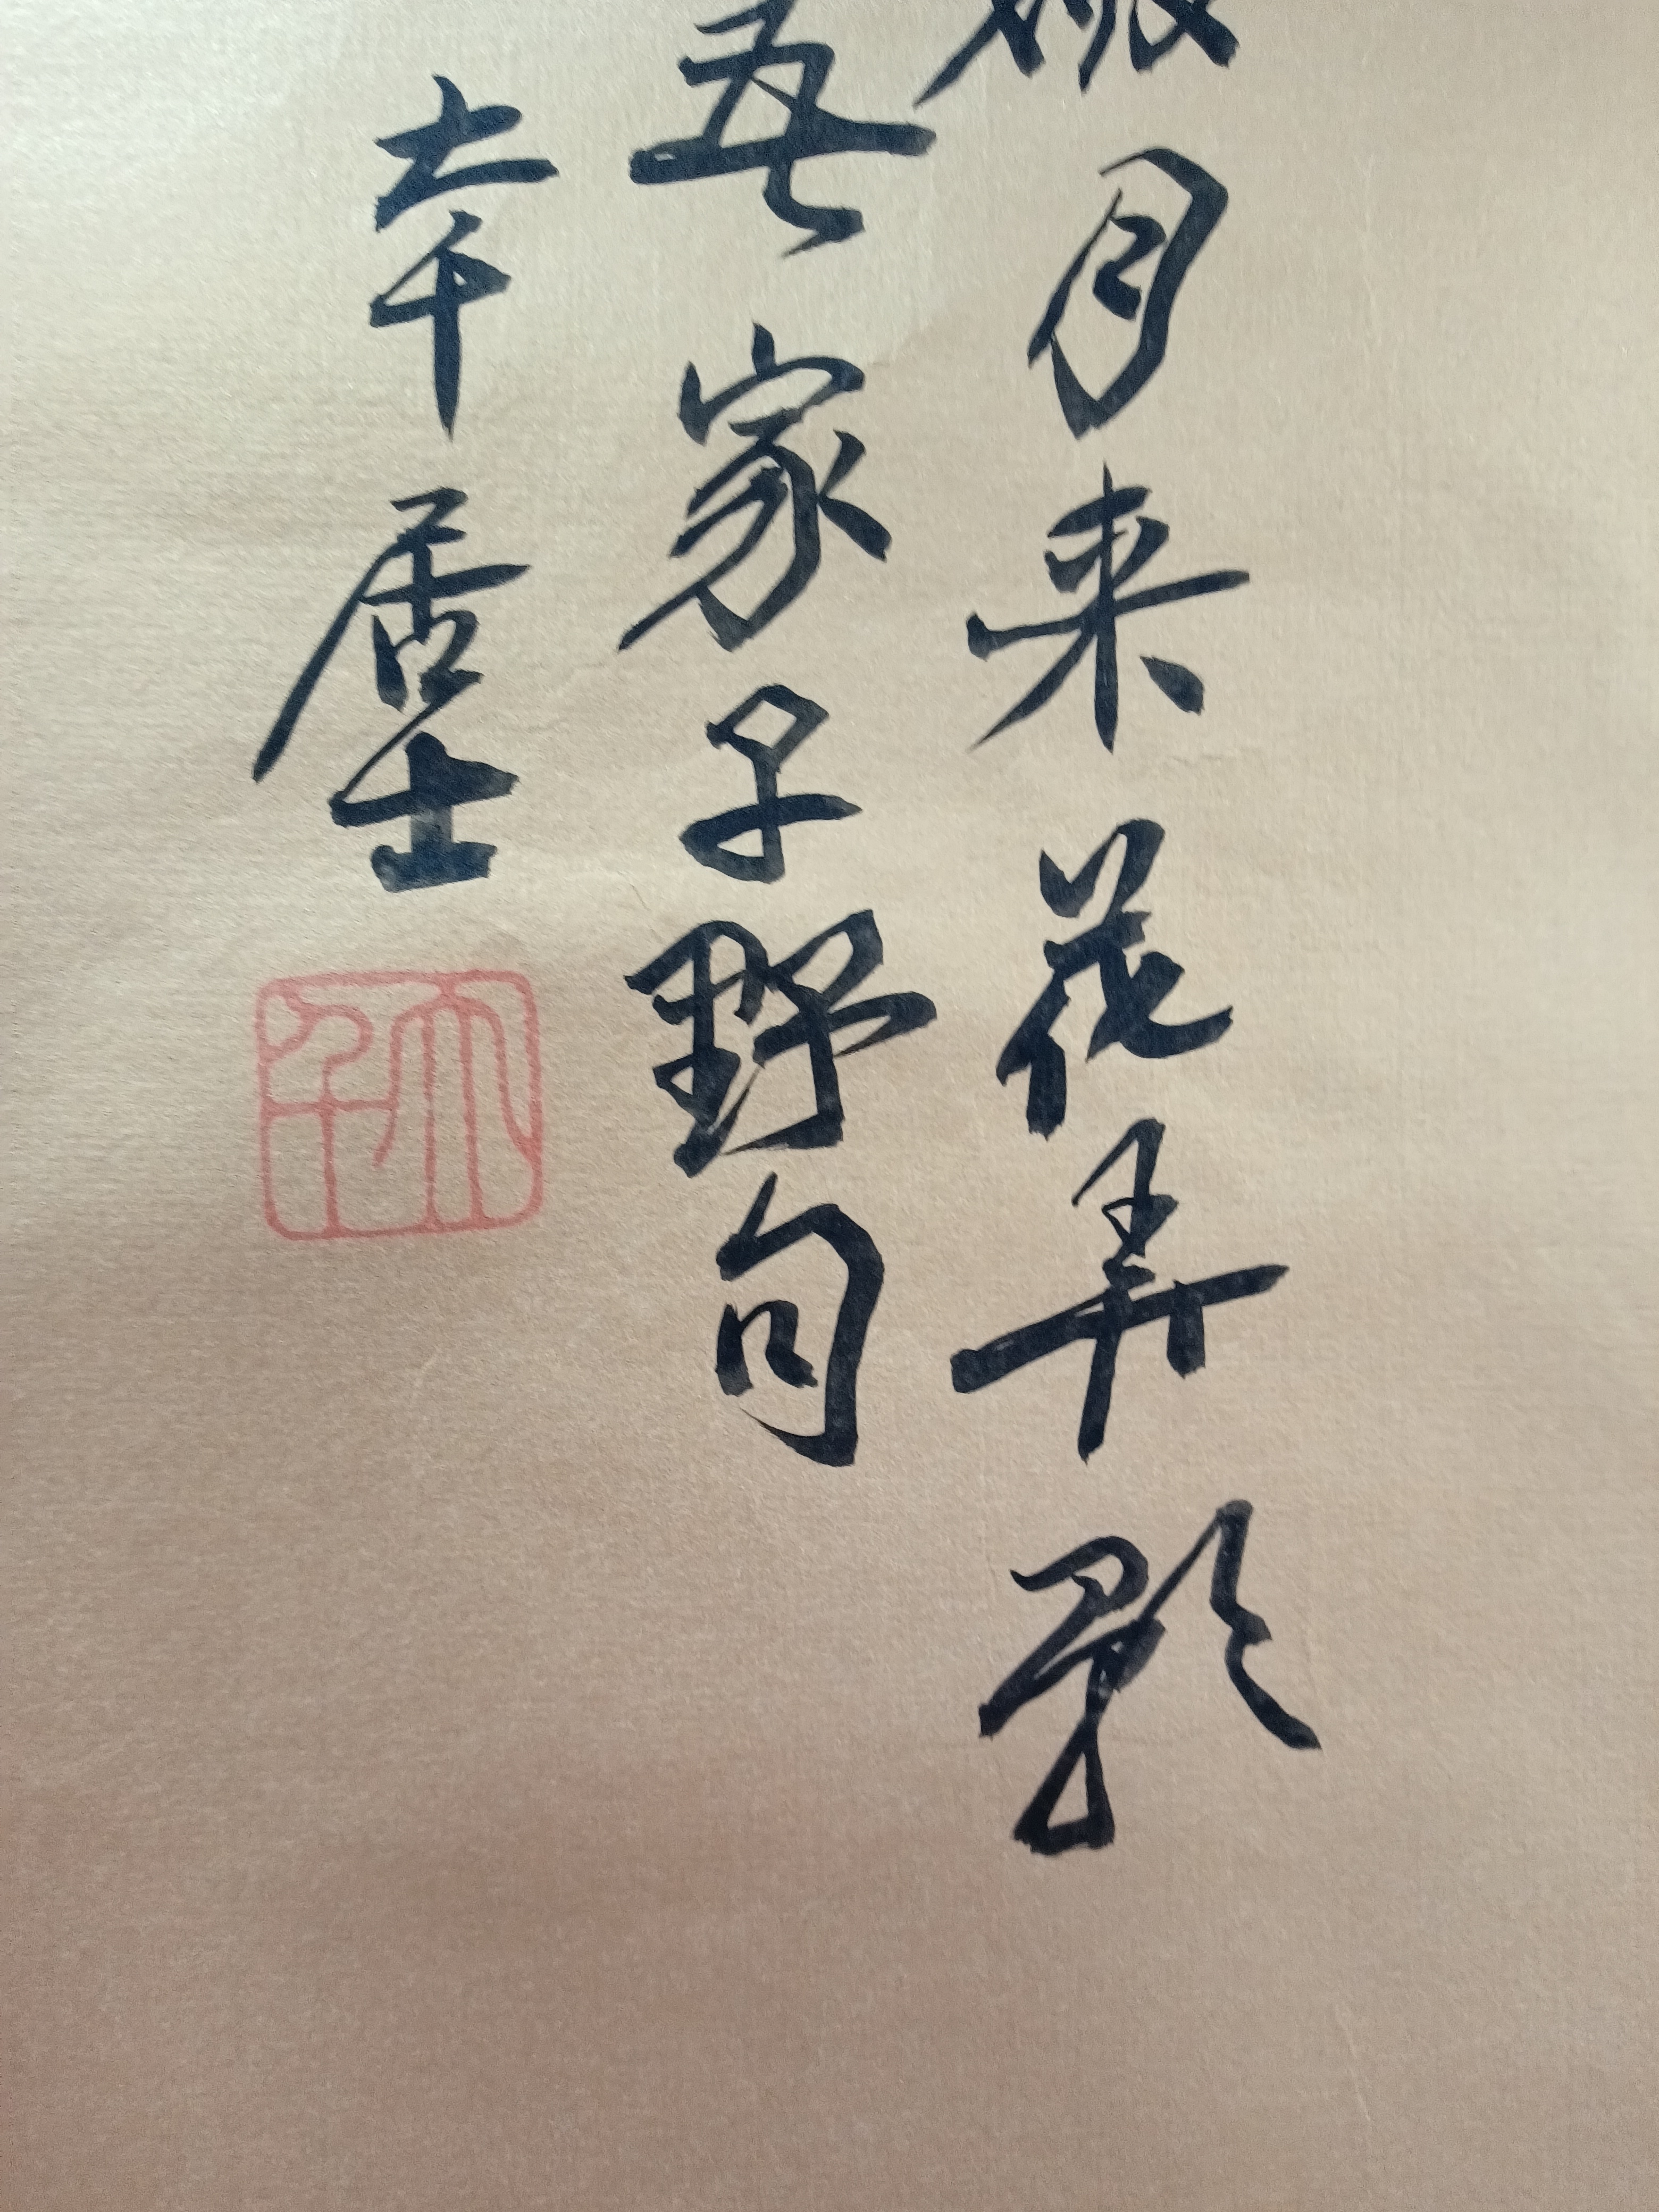 月来花弄影
吾家子野句
大千居士
大千